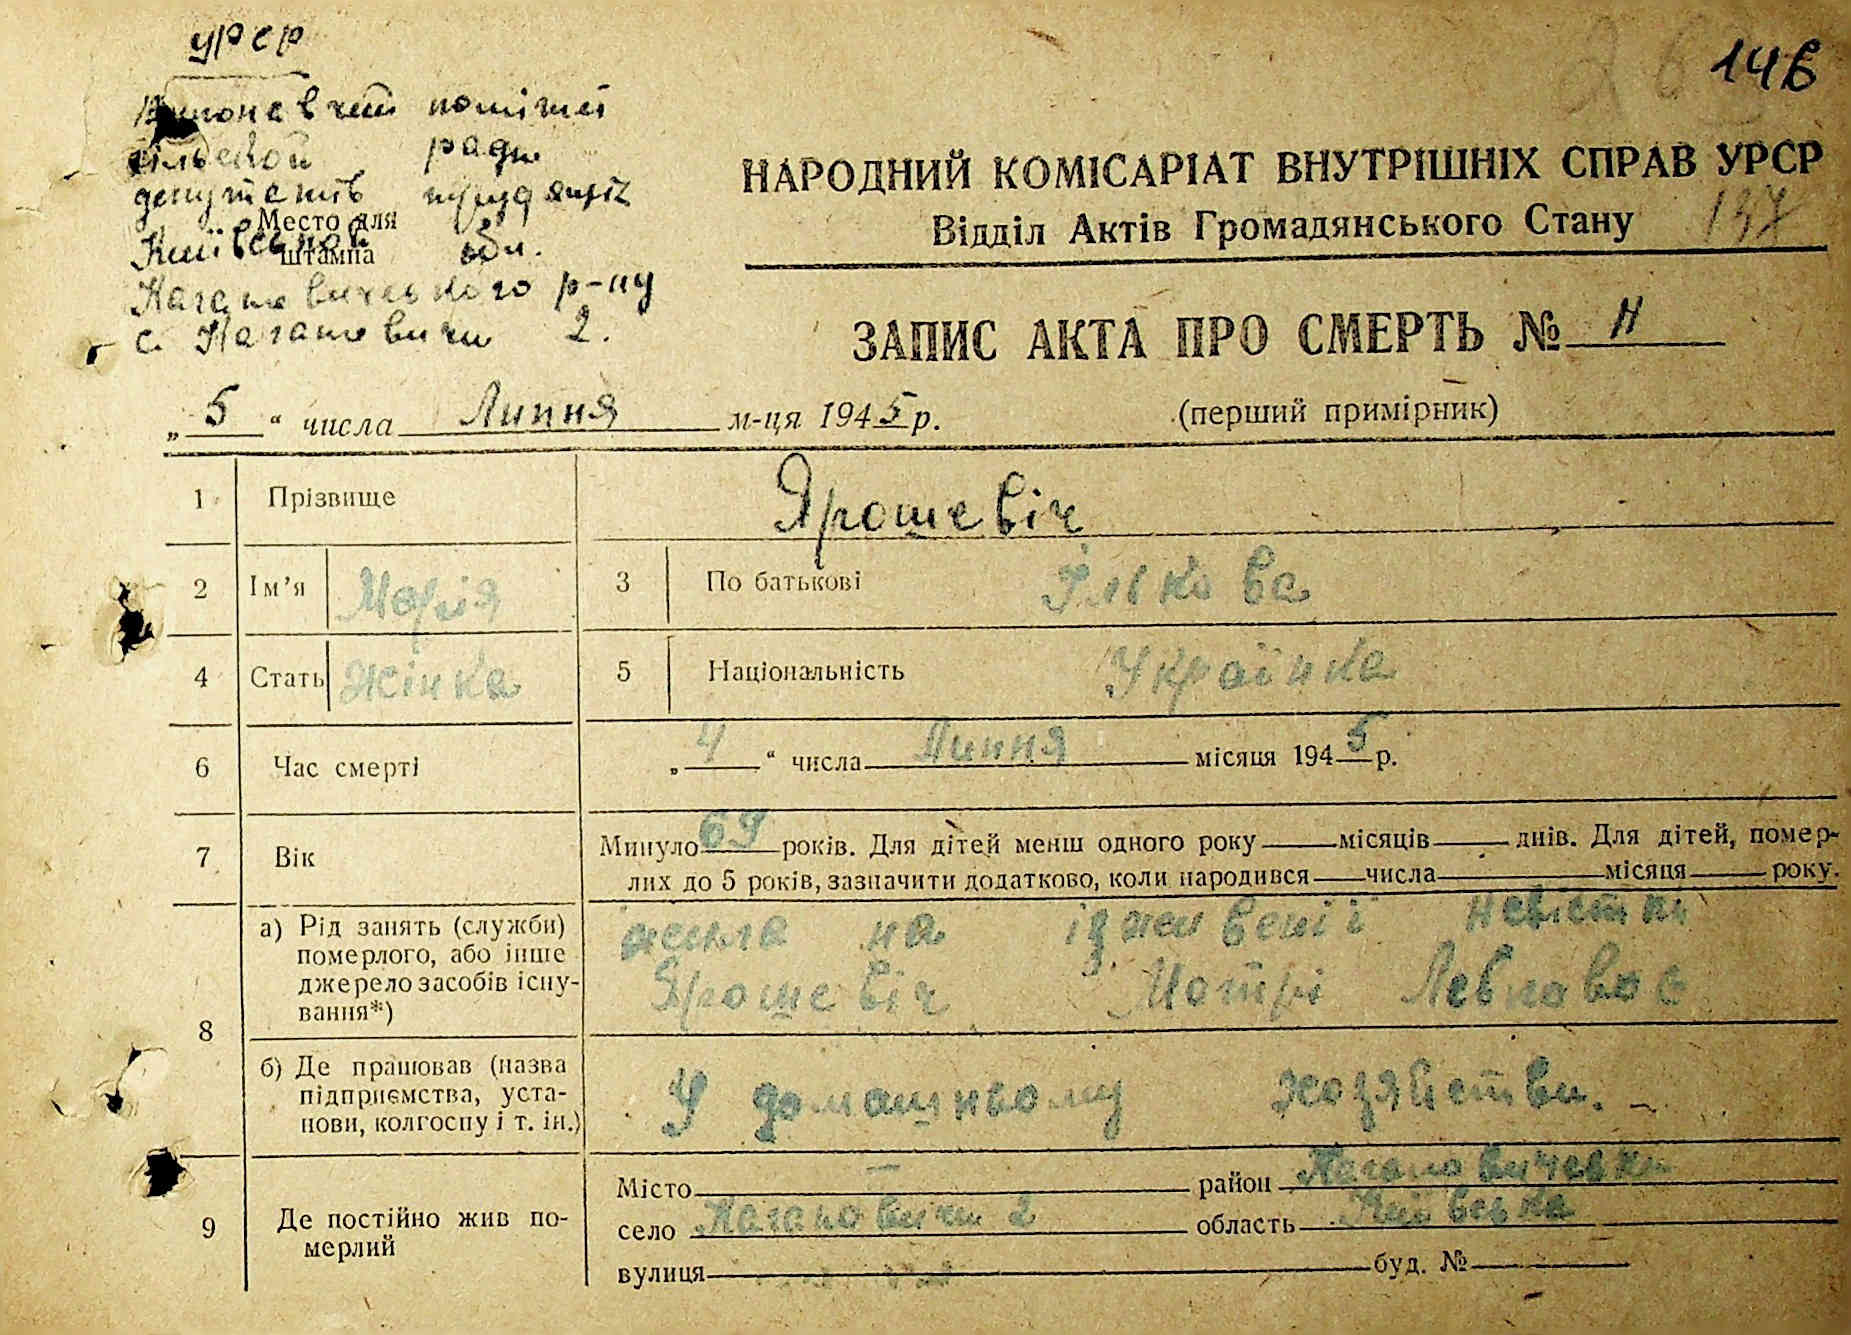 УРСР
14в
Виконавчий комітет
сільської ради
депутатів трудящих
Место для
штампа
Київської обл.
Кагановичського р-ну
с. Кагановичи 2.
НАРОДНИЙ КОМІСАРІАТ ВНУТРІШНІХ СПРАВ УРСР
Відділ Актів Громадянського Стану
137
ЗАПИС АКТА ПРО СМЕРТЬ № 11
„ 5 “ числа Липня м-ця 1945 р.
(перший примірник)
1 Прізвище Ярошевіч
2 Ім’я Марія 3 По батькові Ількова
4 Стать Жінка 5 Національність Українка
6 Час смерті „ 4 “ числа Липня місяця 1945 р.
7 Вік Минуло 69 років. Для дітей менш одного року місяців днів. Для дітей, помер-
лих до 5 років, зазначити додатково, коли народився числа місяця року.
8
а) Рід занять (служби)
померлого, або інше
джерело засобів існу-
вання*)
жила на іждивенії невістки
Ярошевіч Мотрі
б) Де працював (назва
підприємства, уста-
нови, колгоспу і т. ін.)
У домашньому хозяйстви.
9 Де постійно жив по-
мерлий
Місто — район Кагановичевки
село Кагановичи 2 область Київська
вулиця буд. №